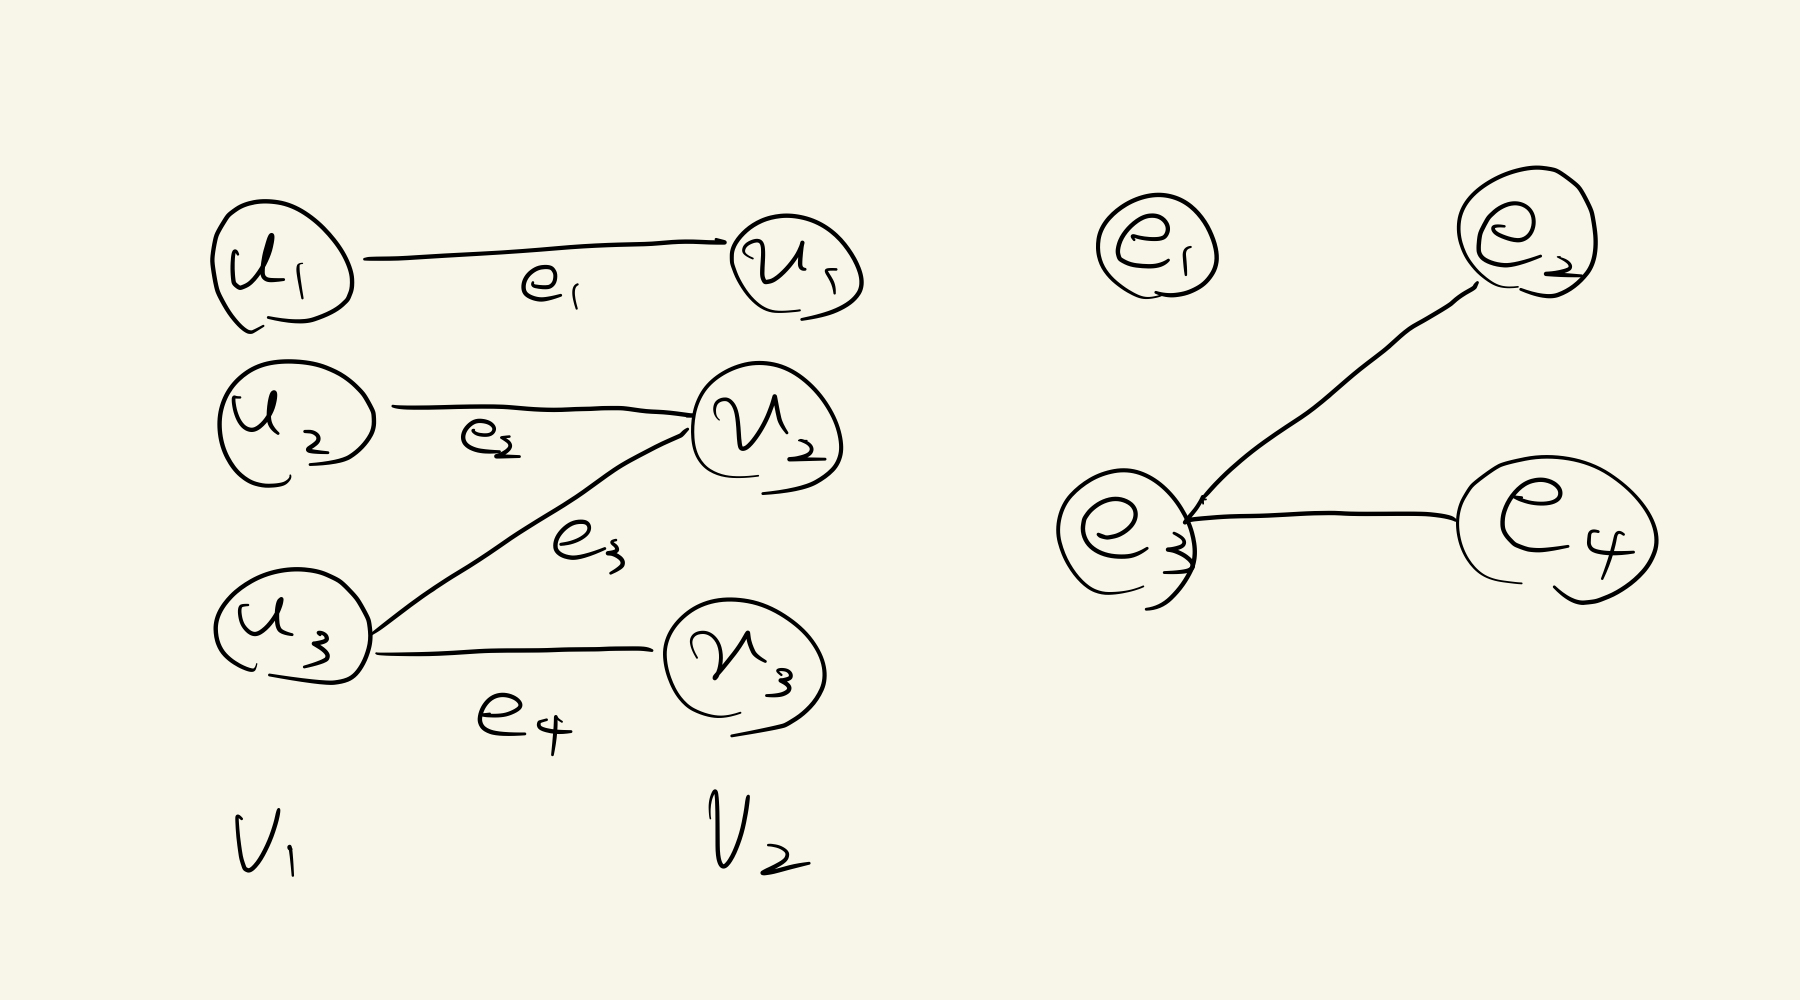 u₁ e₁ v₁
u₂ e₂ v₂
e₃
u₃ v₃
e₄
V₁ V₂
e₁ e₂
e₃ e₄